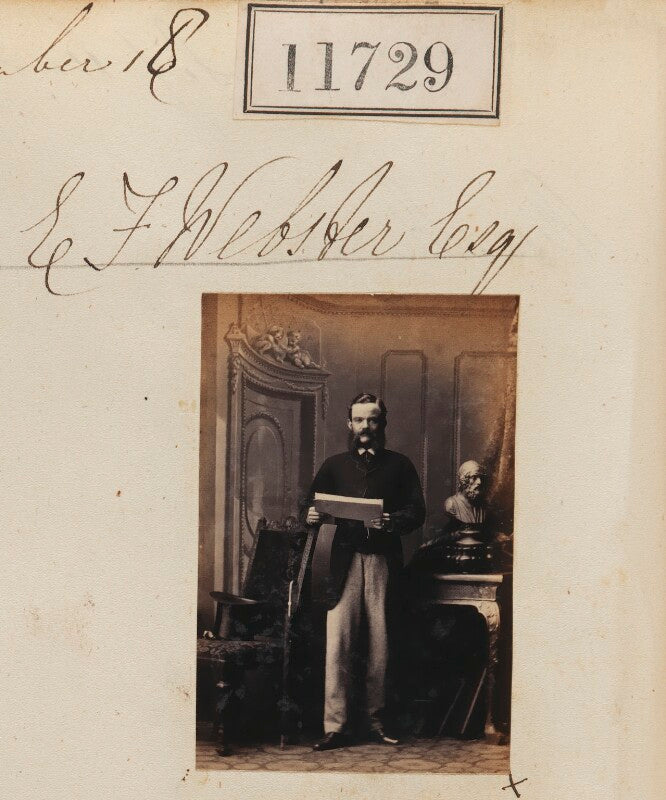 ber 18
11729
E F Webster Esq